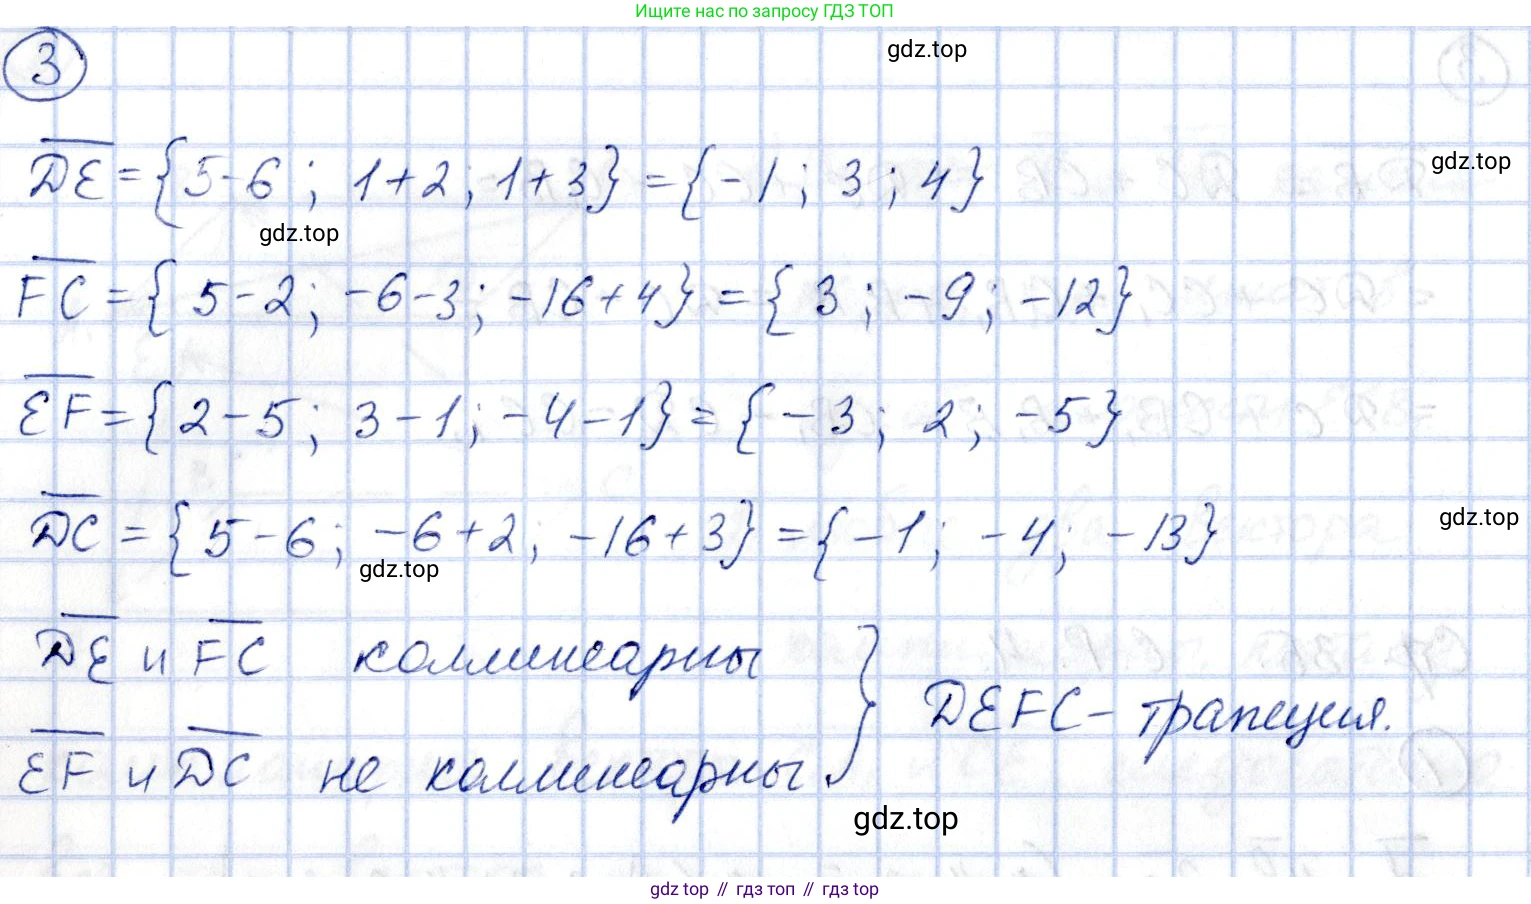 Ищите нас по запросу ГДЗ ТОП
3
gdz.top
DE = {5-6; 1+2; 1+3} = {-1; 3; 4}
gdz.top
gdz.top
FC = {5-2; -6-3; -16+4} = {3; -9; -12}
EF = {2-5; 3-1; -4-1} = {-3; 2; -5}
DC = {5-6; -6+2; -16+3} = {-1; -4; -13}
gdz.top
gdz.top
DE и FC коллинеарны
EF и DC не коллинеарны
} DEFC - трапеция.
gdz.top
gdz top // гдз топ // гдз top